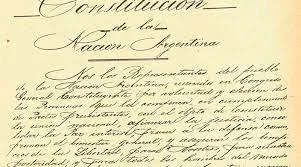 Constitución
de la
Nación Argentina
Nos los Representantes del pueblo
de la Nación Argentina, reunidos en Congreso
General Constituyente por voluntad y elección de
las Provincias que la componen, en cumplimiento
de Pactos preexistentes con el objeto de constituir
la unión nacional, afianzar la justicia, conso-
lidar la Paz interior, proveer á la defensa comun,
promover el bienestar general, y asegurar los benefi-
cios de la Libertad para